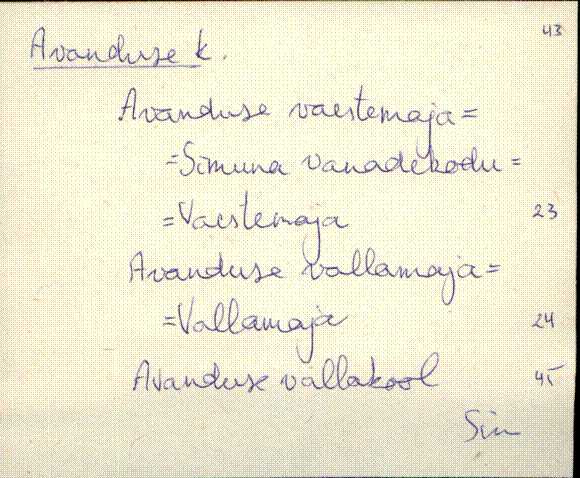 43
Avanduse k.
Avanduse vaestemaja=
=Simuna vanadekodu=
=Vaestemaja 23
Avanduse vallamaja=
=Vallamaja 24
Avanduse vallakool 45
Sim